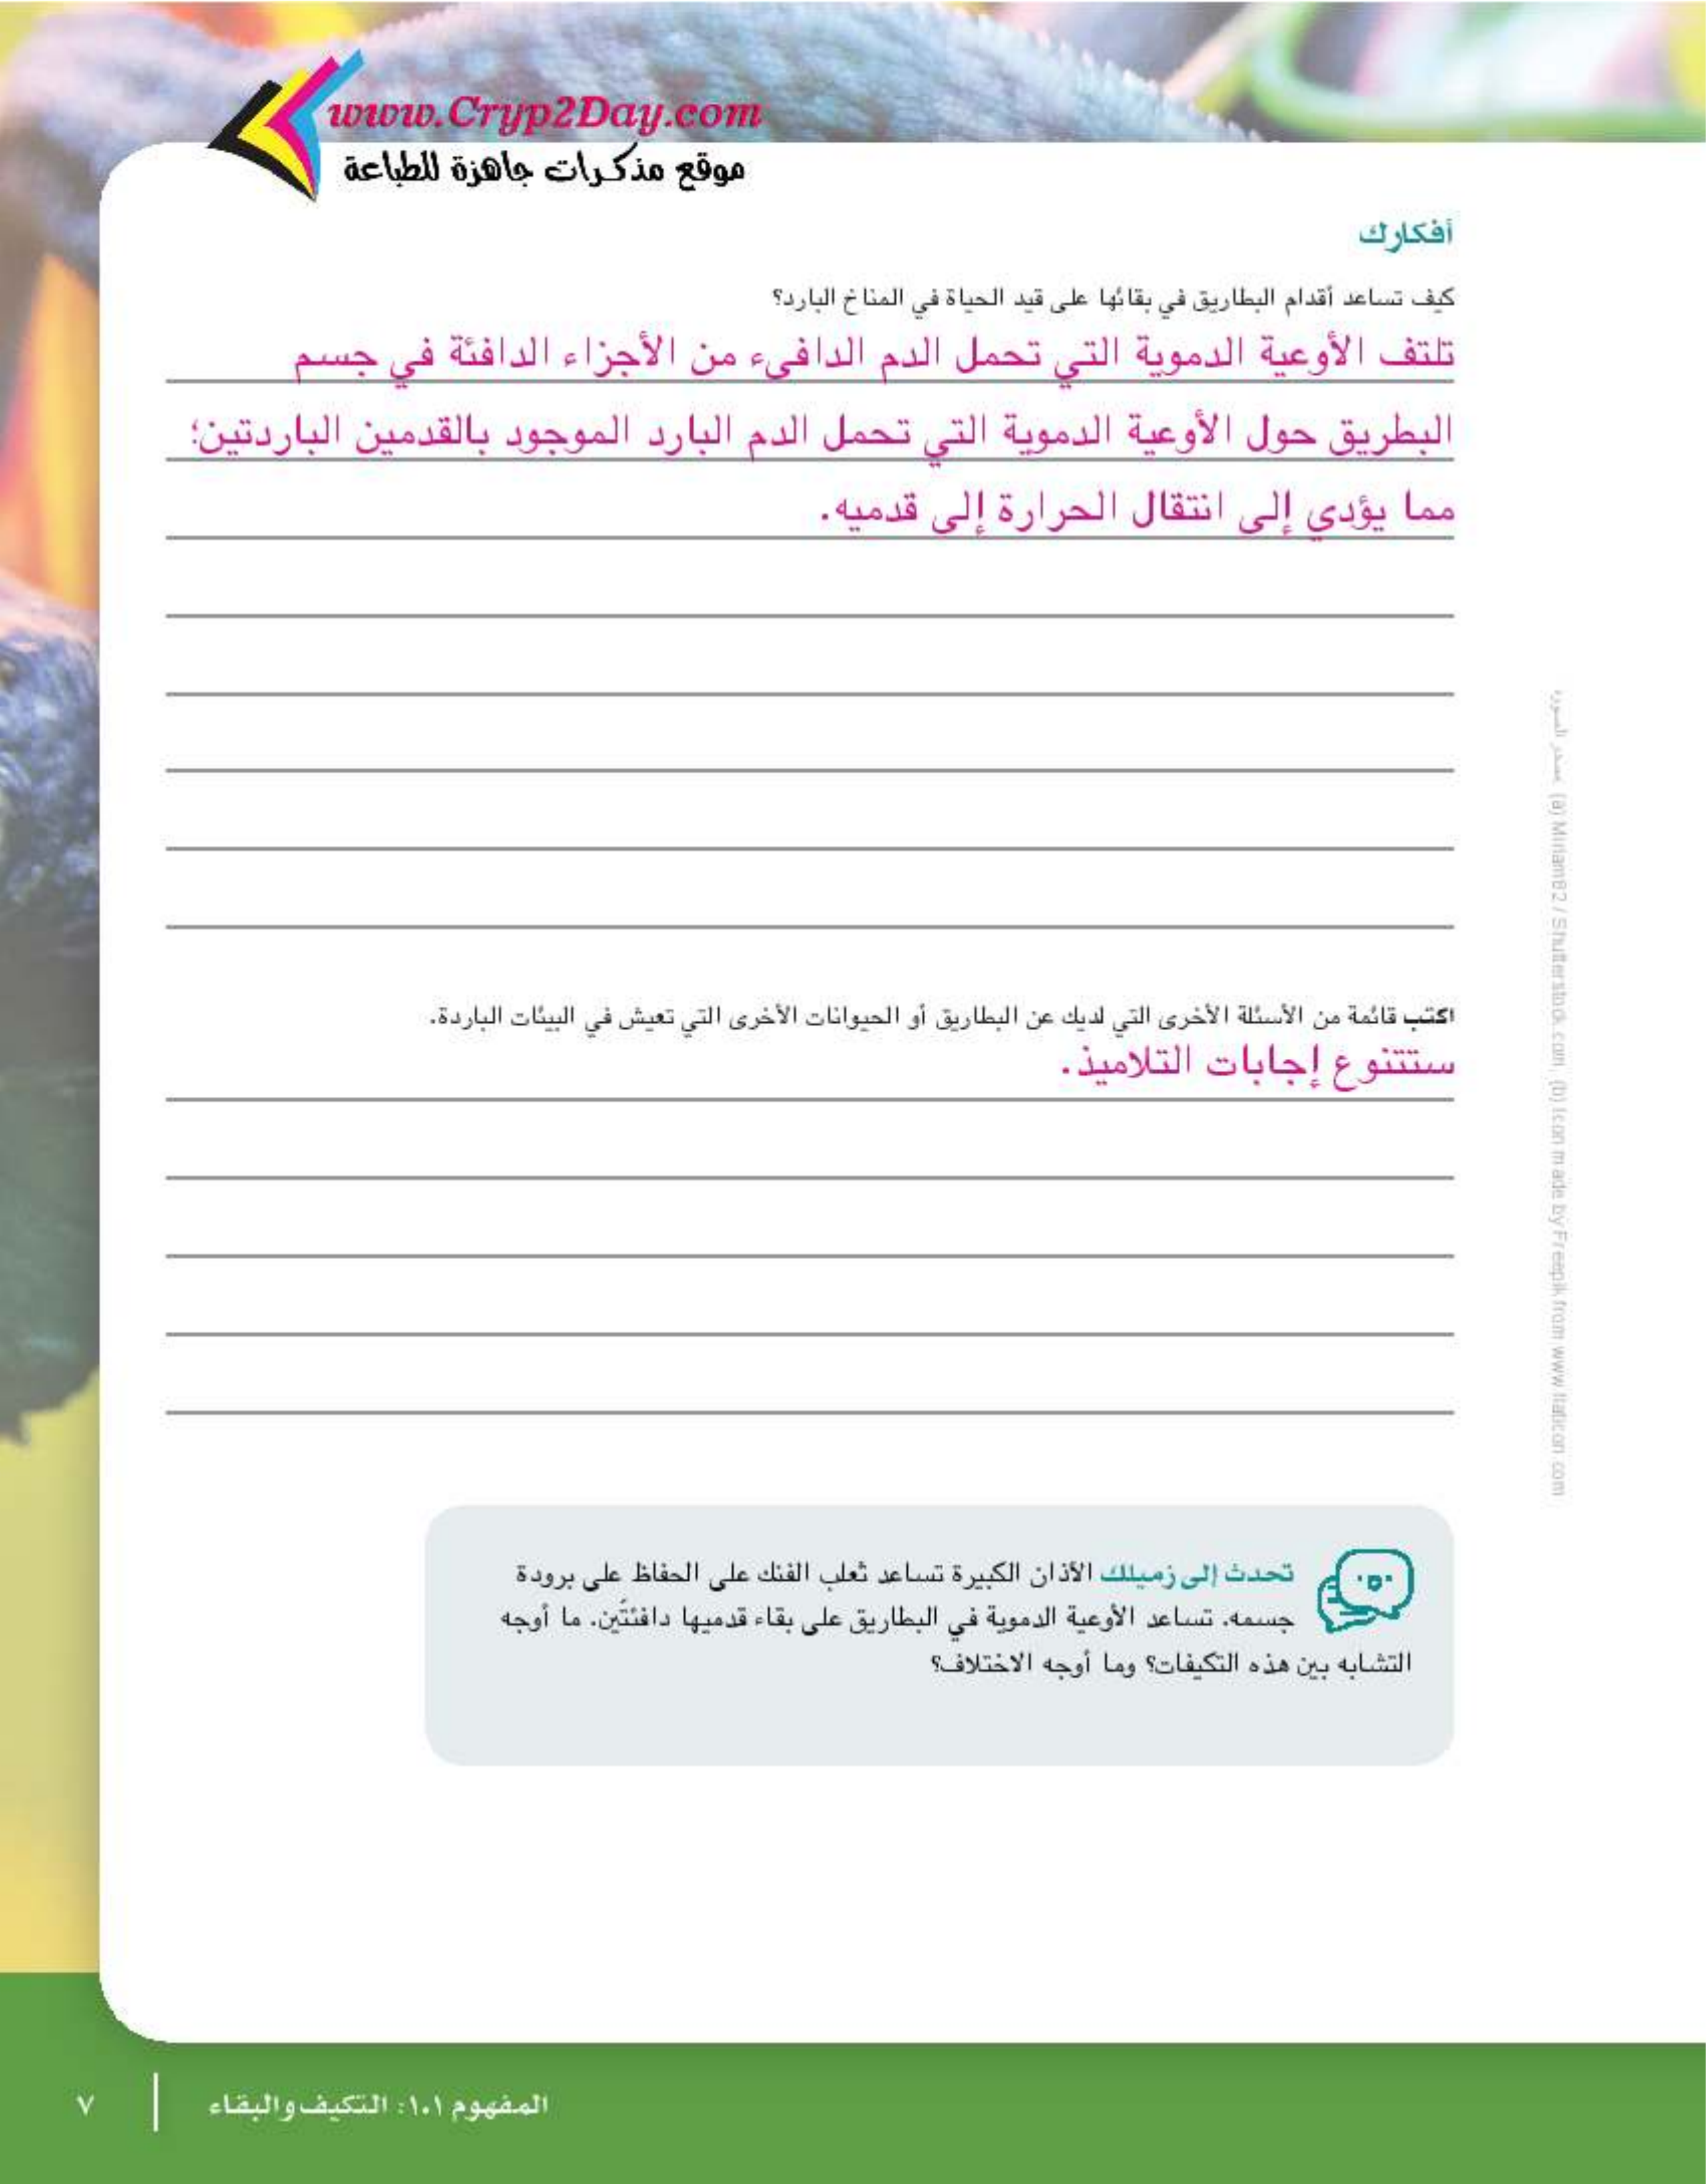 www.Cryp2Day.com
موقع مذكرات جاهزة للطباعة
أفكارك
كيف تساعد أقدام البطاريق في بقائها على قيد الحياة في المناخ البارد؟
تلتف الأوعية الدموية التي تحمل الدم الدافىء من الأجزاء الدافئة في جسم
البطريق حول الأوعية الدموية التي تحمل الدم البارد الموجود بالقدمين الباردتين؛
مما يؤدي إلى انتقال الحرارة إلى قدميه.
اكتب قائمة من الأسئلة الأخرى التي لديك عن البطاريق أو الحيوانات الأخرى التي تعيش في البيئات الباردة.
ستتنوع إجابات التلاميذ.
تحدث إلى زميلك الأذان الكبيرة تساعد ثعلب الفنك على الحفاظ على برودة
جسمه. تساعد الأوعية الدموية في البطاريق على بقاء قدميها دافئتَين. ما أوجه
التشابه بين هذه التكيفات؟ وما أوجه الاختلاف؟
مصدر الصورة: (a) Miriam82 / Shutterstock.com, (b) Icon made by Freepik from www.flaticon.com
المفهوم ١.١: التكيف والبقاء
٧